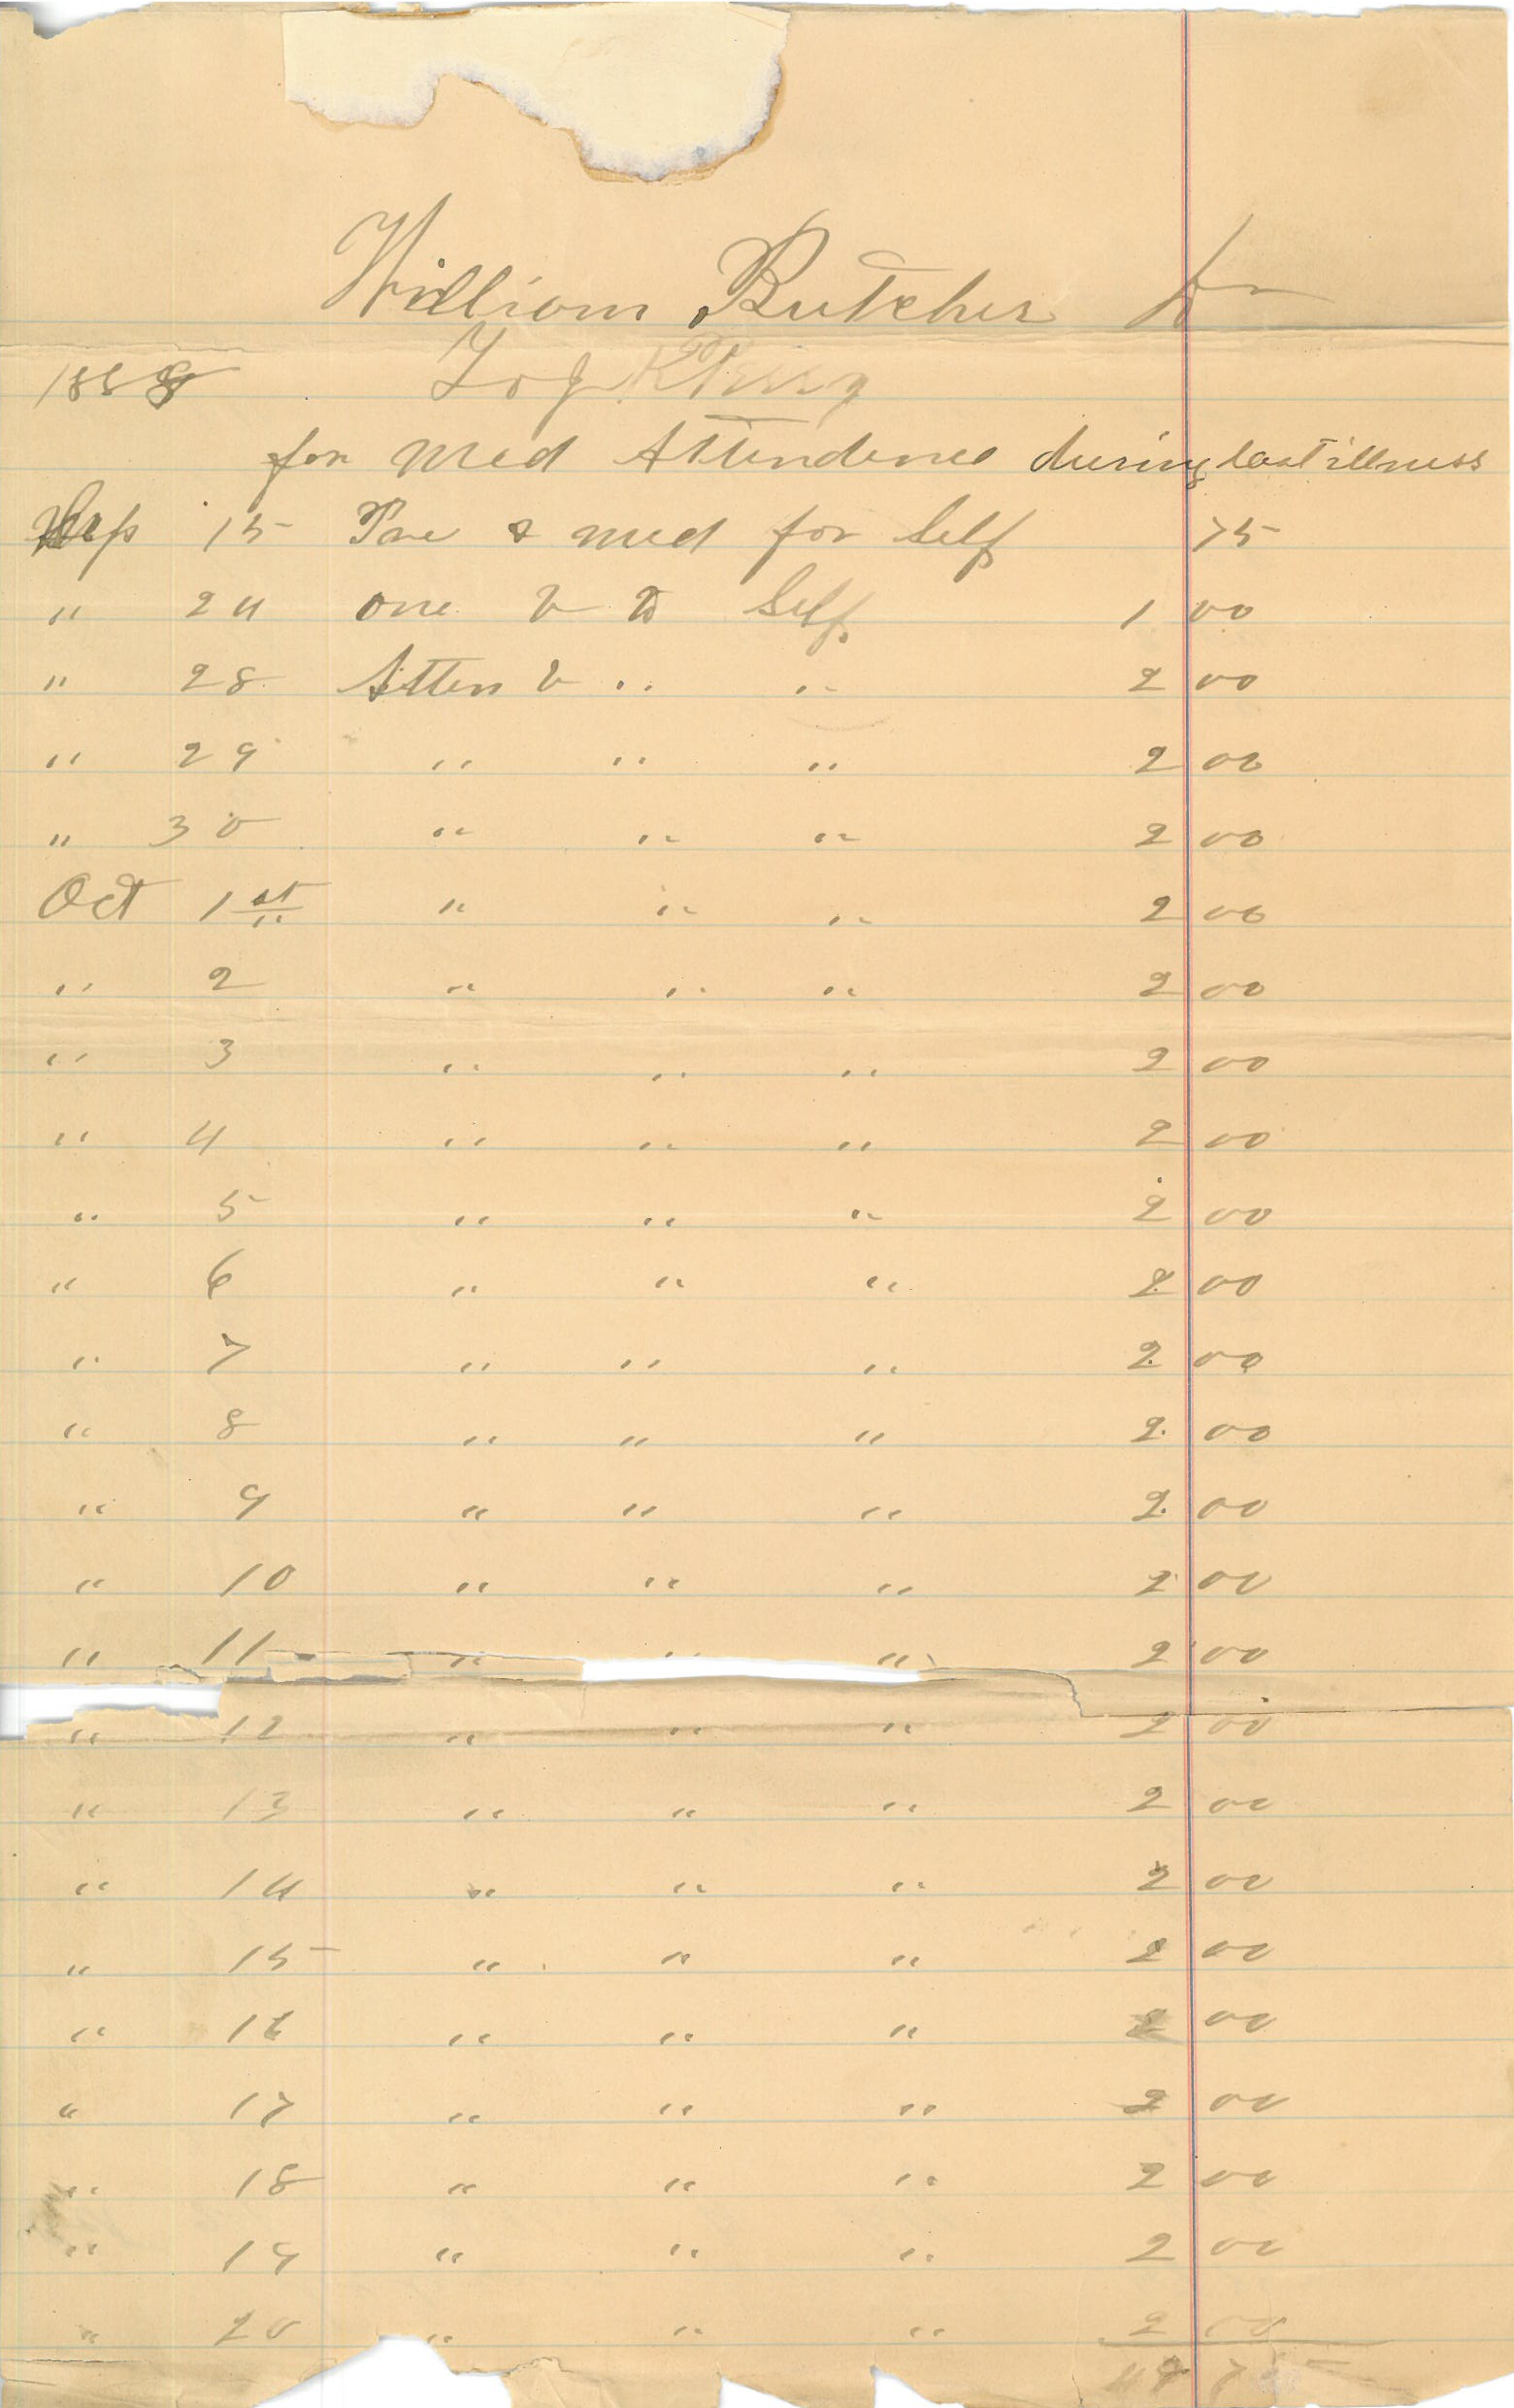 William Butcher Dr
1888 To J
for med Attendence during last illness
Sep 15 Pre & med for Self 75
" 24 one V to Self 1 00
" 28 Atten V " " 2 00
" 29 " " " 2 00
" 30 " " " 2 00
Oct 1st " " " 2 00
" 2 " " " 2 00
" 3 " " " 2 00
" 4 " " " 2 00
" 5 " " " 2 00
" 6 " " " 2 00
" 7 " " " 2 00
" 8 " " " 2 00
" 9 " " " 2 00
" 10 " " " 2 00
" 11 " " " 2 00
" 12 " " " 2 00
" 13 " " " 2 00
" 14 " " " 2 00
" 15 " " " 2 00
" 16 " " " 2 00
" 17 " " " 2 00
" 18 " " " 2 00
" 19 " " " 2 00
" 20 " " " 2 00
47 75